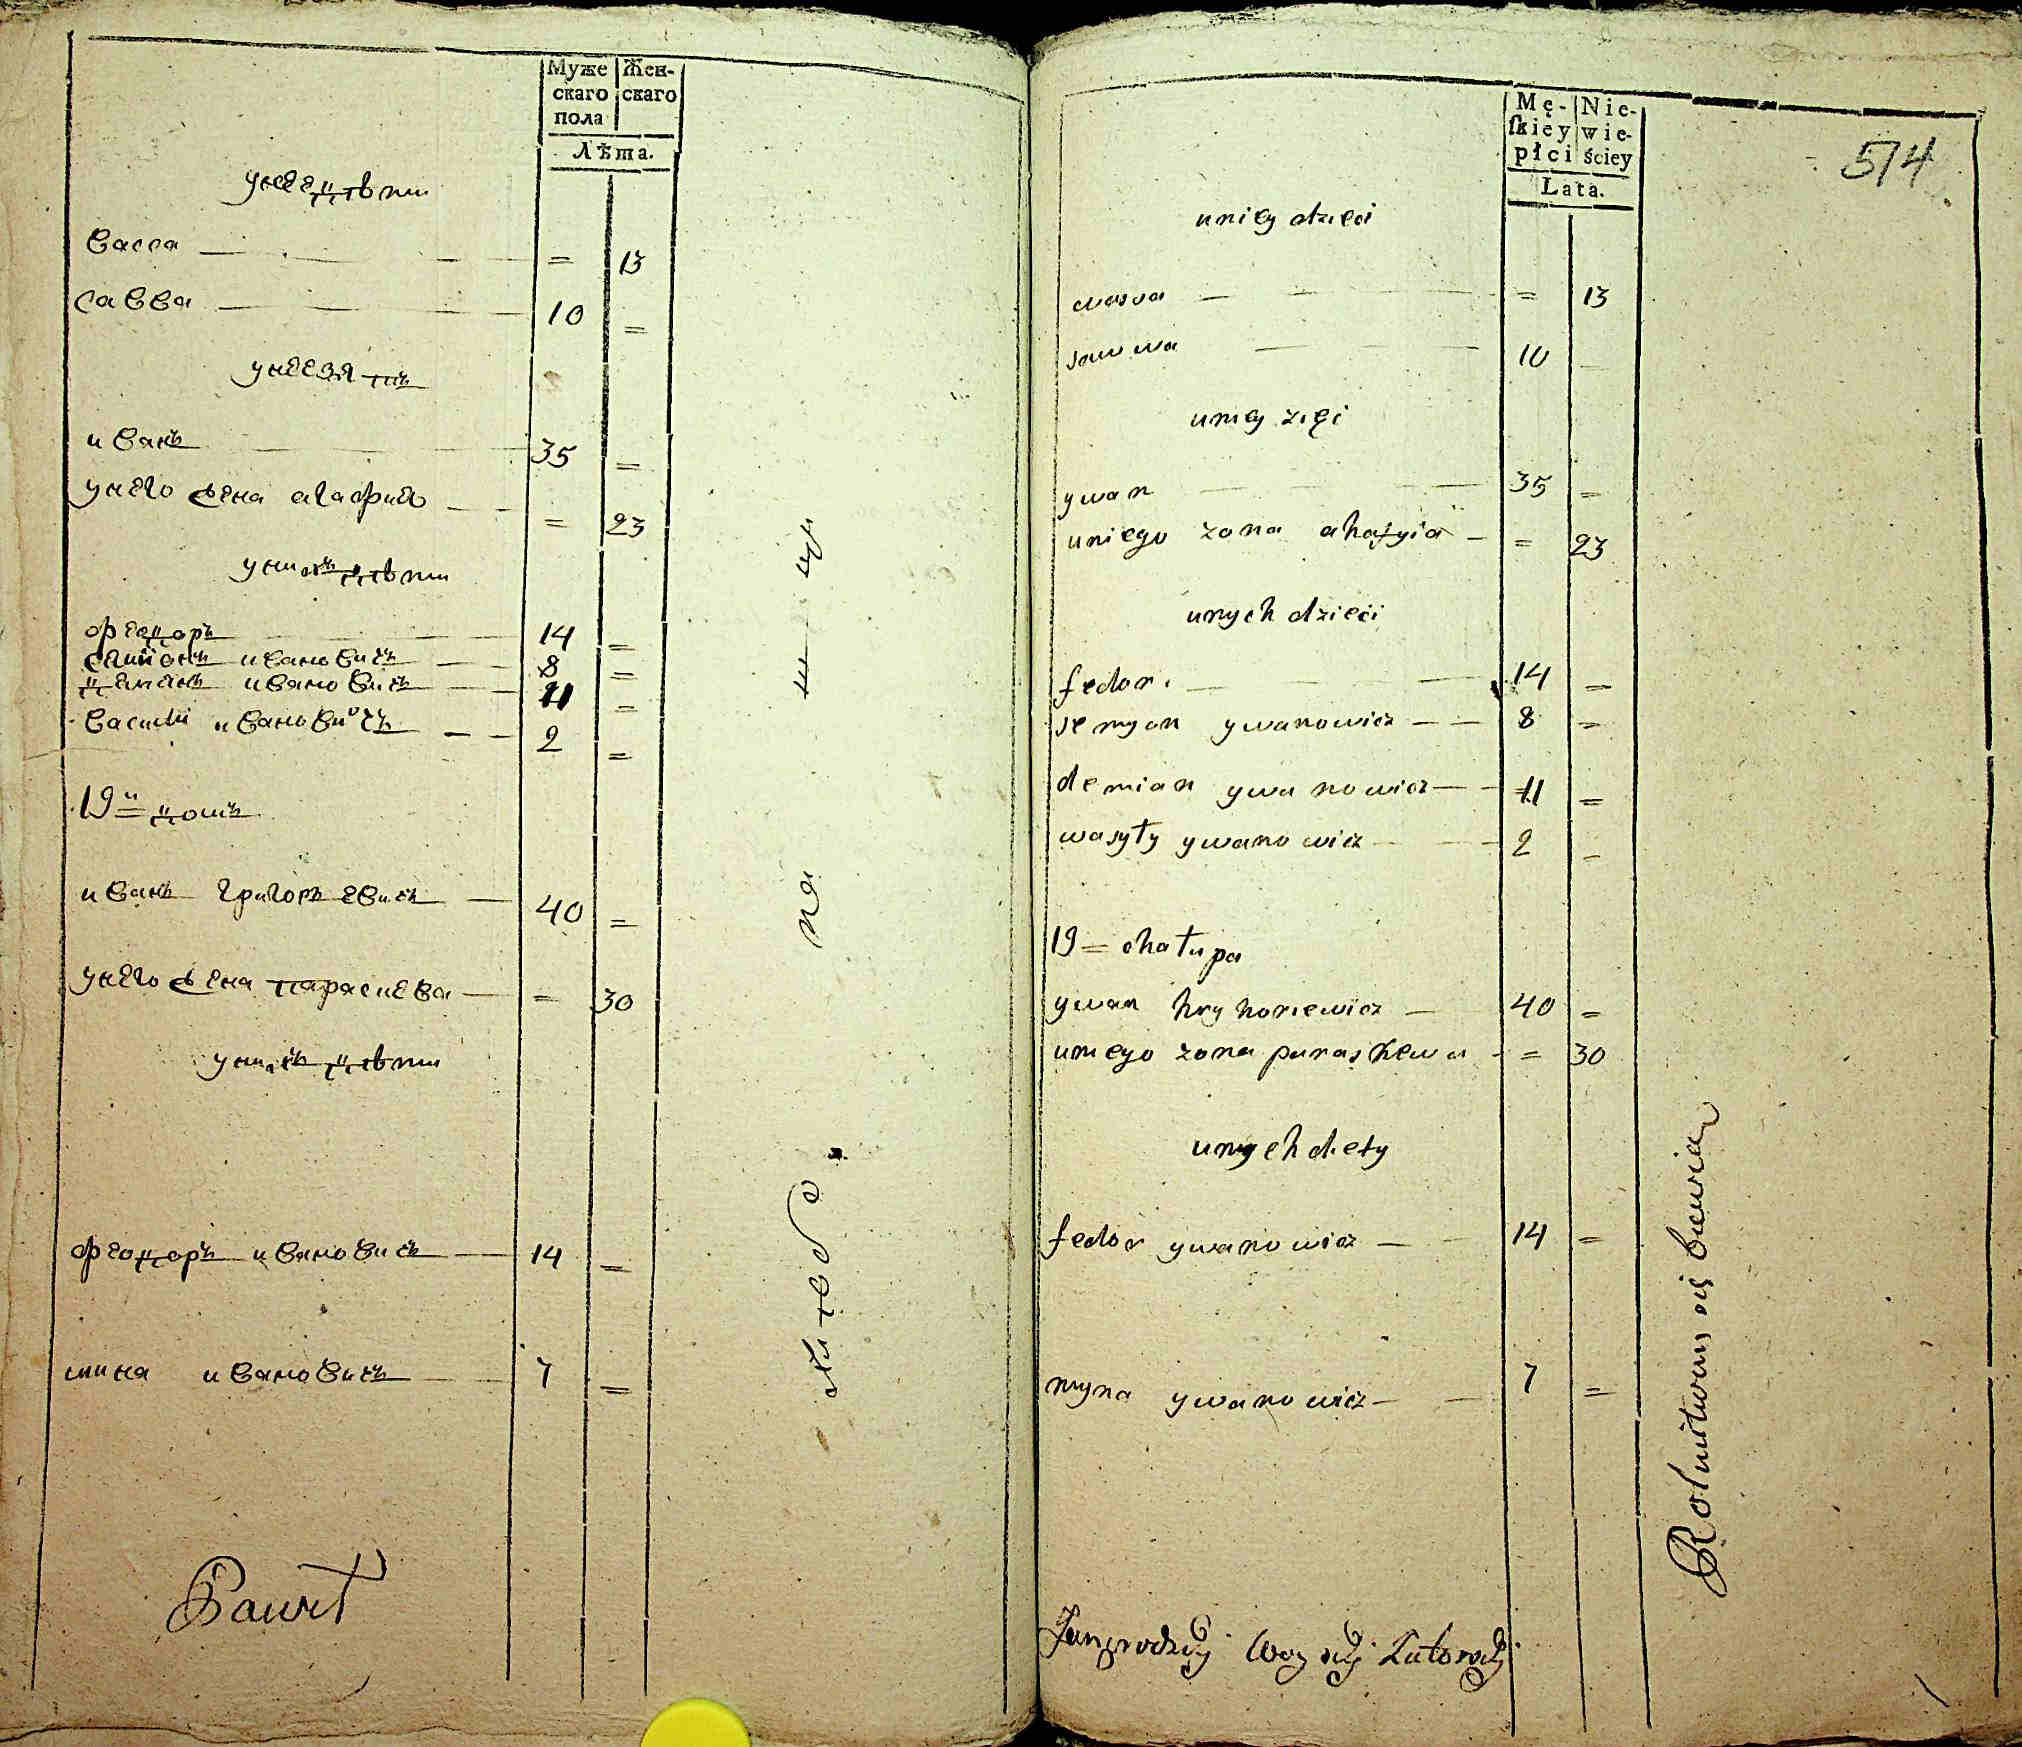 Муже
скаго
пола
Жен-
скаго
Лѣта.
унее дѣти
васса — = 13
савва — 10 =
унее зять
иванъ — 35 =
унего жена агафия — = 23
унихъ дѣти
феодоръ — 14 =
семионъ ивановичъ — 8 =
демянъ ивановичъ — 11 =
василий ивановичъ — 2 =
19й домъ
иванъ григорьевичъ — 40 =
унего жена параскева — = 30
унихъ дѣти
феодоръ ивановичъ — 14 =
мина ивановичъ — 7 =
Paweł
514
Mę-
skiey
płci
Nie-
wie-
ściey
Lata.
uniey dzieci
wasva — = 13
sawwa — 10
uniey zięć
ywan — 35 =
uniego zona ahafyia — = 23
unych dzieci
fedor — 14 =
semyon ywanowicz — 8 =
demian ywanowicz — 11 =
wasyły ywanowicz — 2 =
19 = chałupa
ywan hryhoriewicz — 40 =
uniego zona paraskewa - = 30
unych diety
fedor ywanowicz — 14 =
myna ywanowicz — 7 =
Rolnitwem się bawią